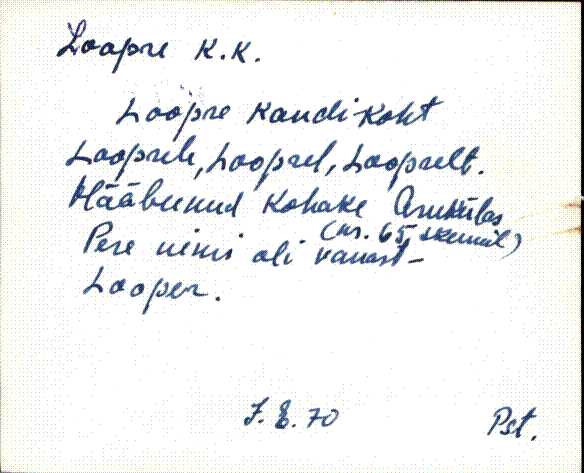 Loopre K.K.
Loopre Kandi-koht
Looprele, Looprel, Looprelt.
Hääbunud Kohake Arukülas
(nr. 65, skeemil)
Pere nimi oli vanast-
Looper.
J. E. 70
Pst.